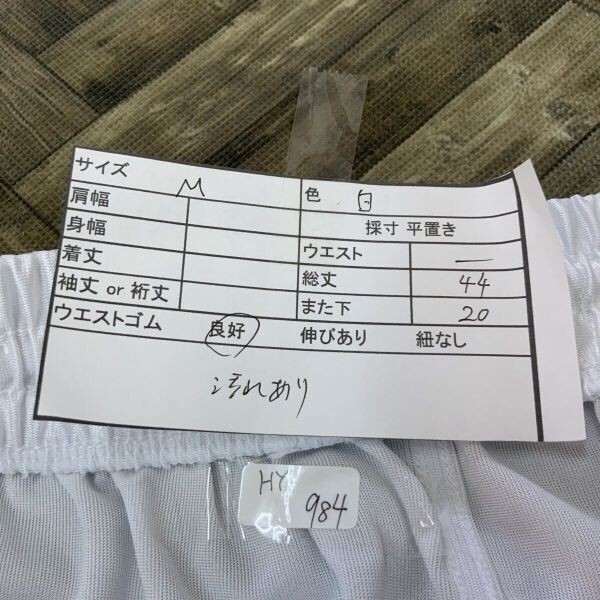 サイズ M 色 白
肩幅 採寸 平置き
身幅 ウエスト —
着丈 総丈 44
袖丈 or 裄丈 また下 20
ウエストゴム 良好 伸びあり 紐なし
汚れあり
HY
984